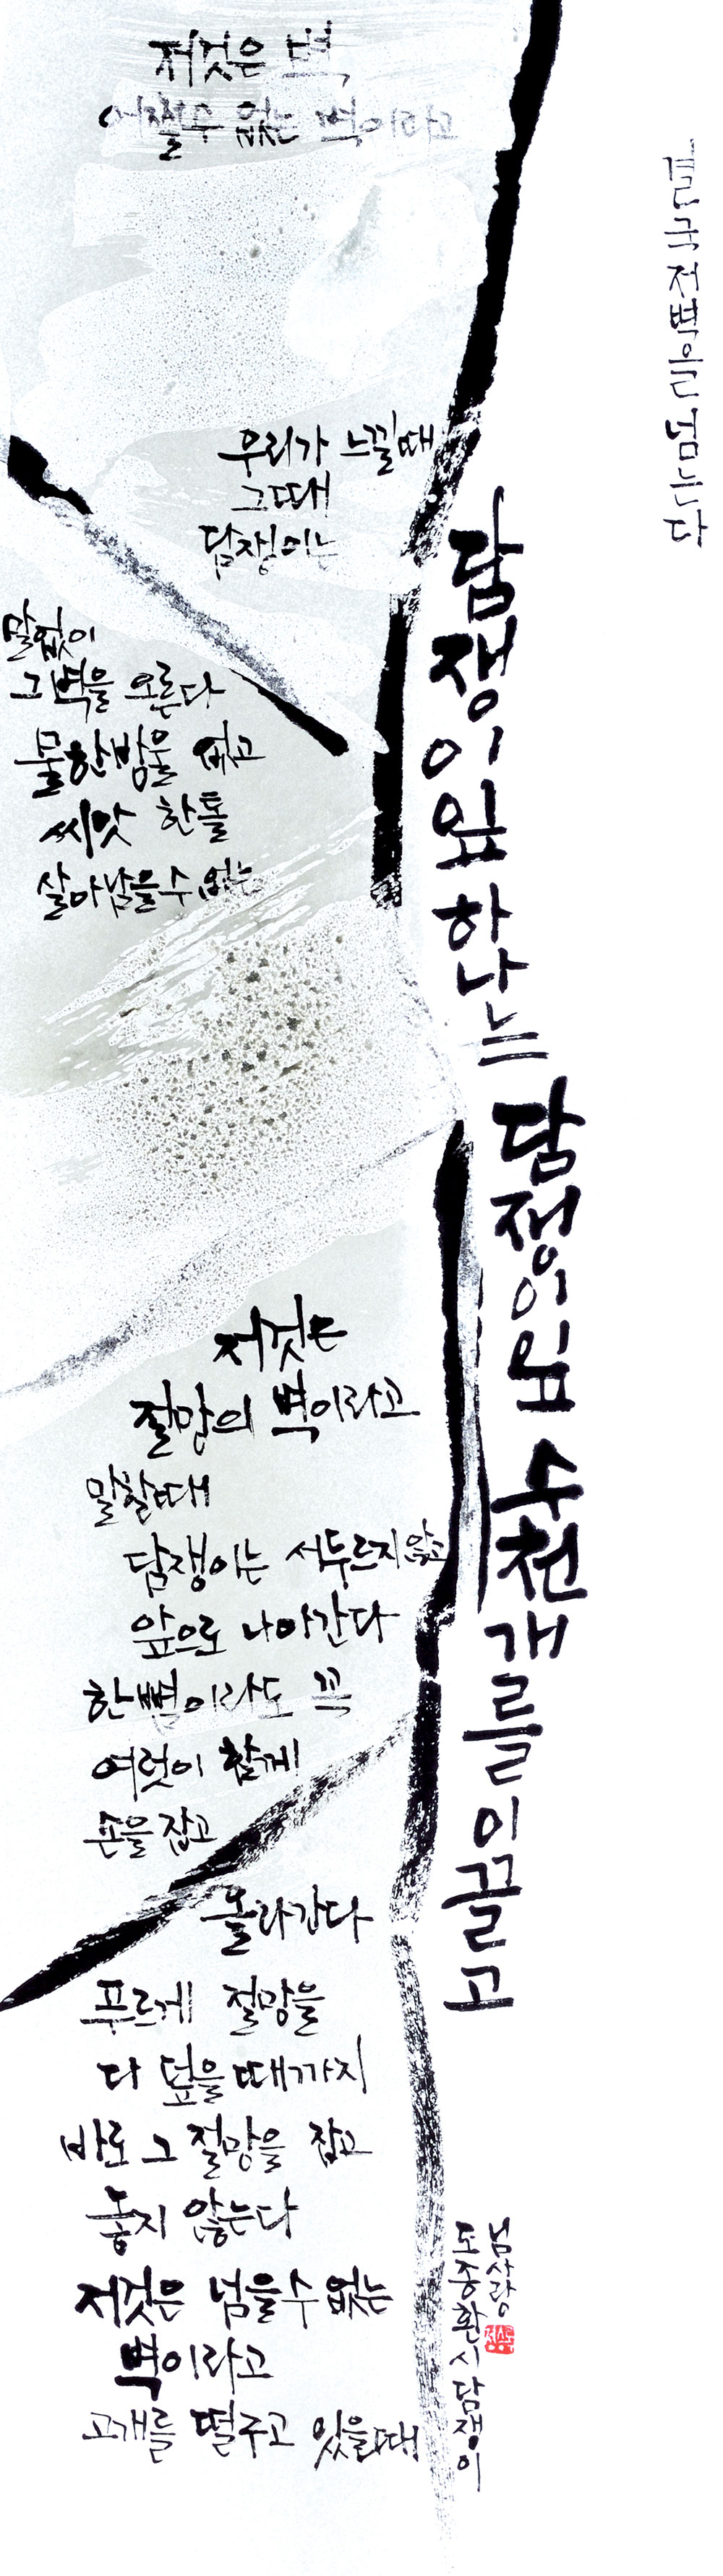 저것은 벽
어쩔수 없는 벽이라고
우리가 느낄때
그때
담쟁이는
말없이
그벽을 오른다
물한방울 없고
씨앗 한톨
살아남을수 없는
저것은
절망의 벽이라고
말할때
담쟁이는 서두르지 않고
앞으로 나아간다
한뼘이라도 꼭
여럿이 함께
손을 잡고
올라간다
푸르게 절망을
다 덮을때까지
바로 그 절망을 잡고
놓지 않는다
저것은 넘을수 없는
벽이라고
고개를 떨구고 있을때
담쟁이잎 하나는
담쟁이잎 수천개를 이끌고
결국 저 벽을 넘는다
도종환 시 담쟁이
님사랑